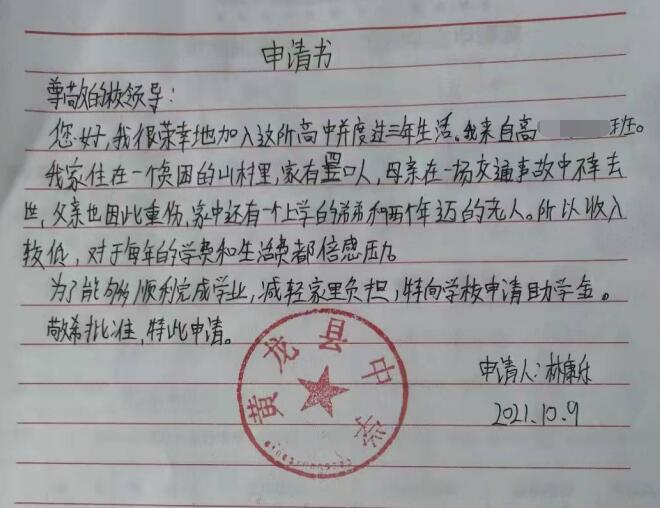 申请书
尊敬的校领导：
您好，我很荣幸地加入这所高中并度过三年生活。我来自高 班。
我家住在一个贫困的山村里，家有 口人，母亲在一场交通事故中不幸去
世，父亲也因此重伤，家中还有一个上学的弟弟和两个年迈的老人。所以收入
较低，对于每年的学费和生活费都倍感压力
为了能够顺利完成学业，减轻家里负担，特向学校申请助学金。
敬希批准，特此申请。
申请人：林康乐
2021.10.9
黄龙县中学